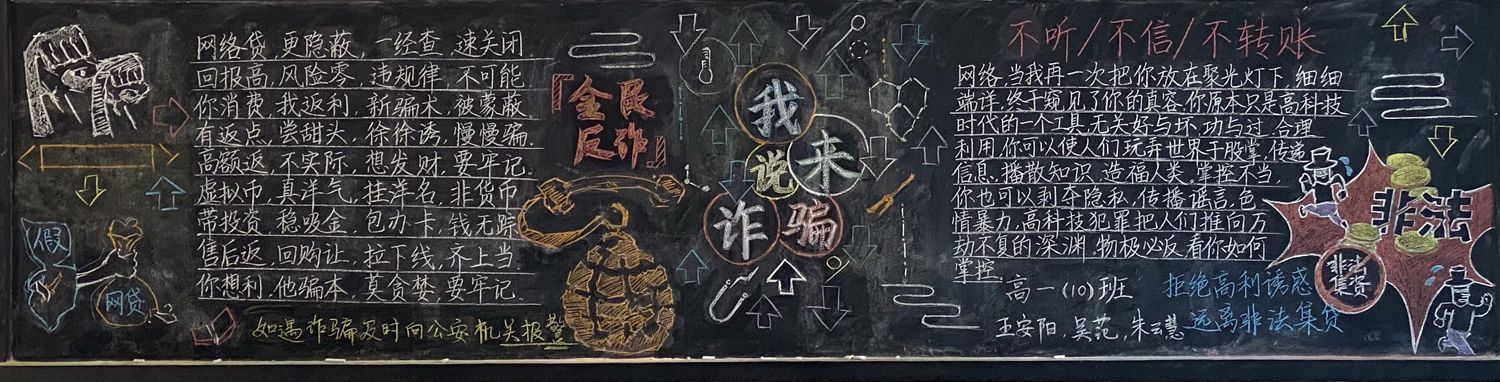 网络贷,更隐蔽,一经查,速关闭.
回报高,风险零,违规律,不可能
你消费,我返利,新骗术,被蒙蔽.
有返点,尝甜头,徐徐诱,慢慢骗.
高额返,不实际,想发财,要牢记.
虚拟币,真洋气,挂洋名,非货币
带投资,稳吸金,包办卡,钱无踪
售后返,回购让,拉下线,齐上当
你想利,他骗本,莫贪婪,要牢记.
假
网贷
如遇诈骗及时向公安机关报警
『全民
反诈』
我
来
说
诈骗
不听/不信/不转账
网络,当我再一次把你放在聚光灯下,细细
端详,终于窥见了你的真容.你原本只是高科技
时代的一个工具,无关好与坏,功与过.合理
利用,你可以使人们玩弄世界于股掌,传递
信息,播散知识,造福人类,掌控不当,
你也可以剥夺隐私,传播谣言,色
情暴力,高科技犯罪把人们推向万
劫不复的深渊.物极必反,看你如何
掌控.
非法
非法
集资
高一(10)班
王安阳,吴范,朱云慧
拒绝高利诱惑
远离非法集贷